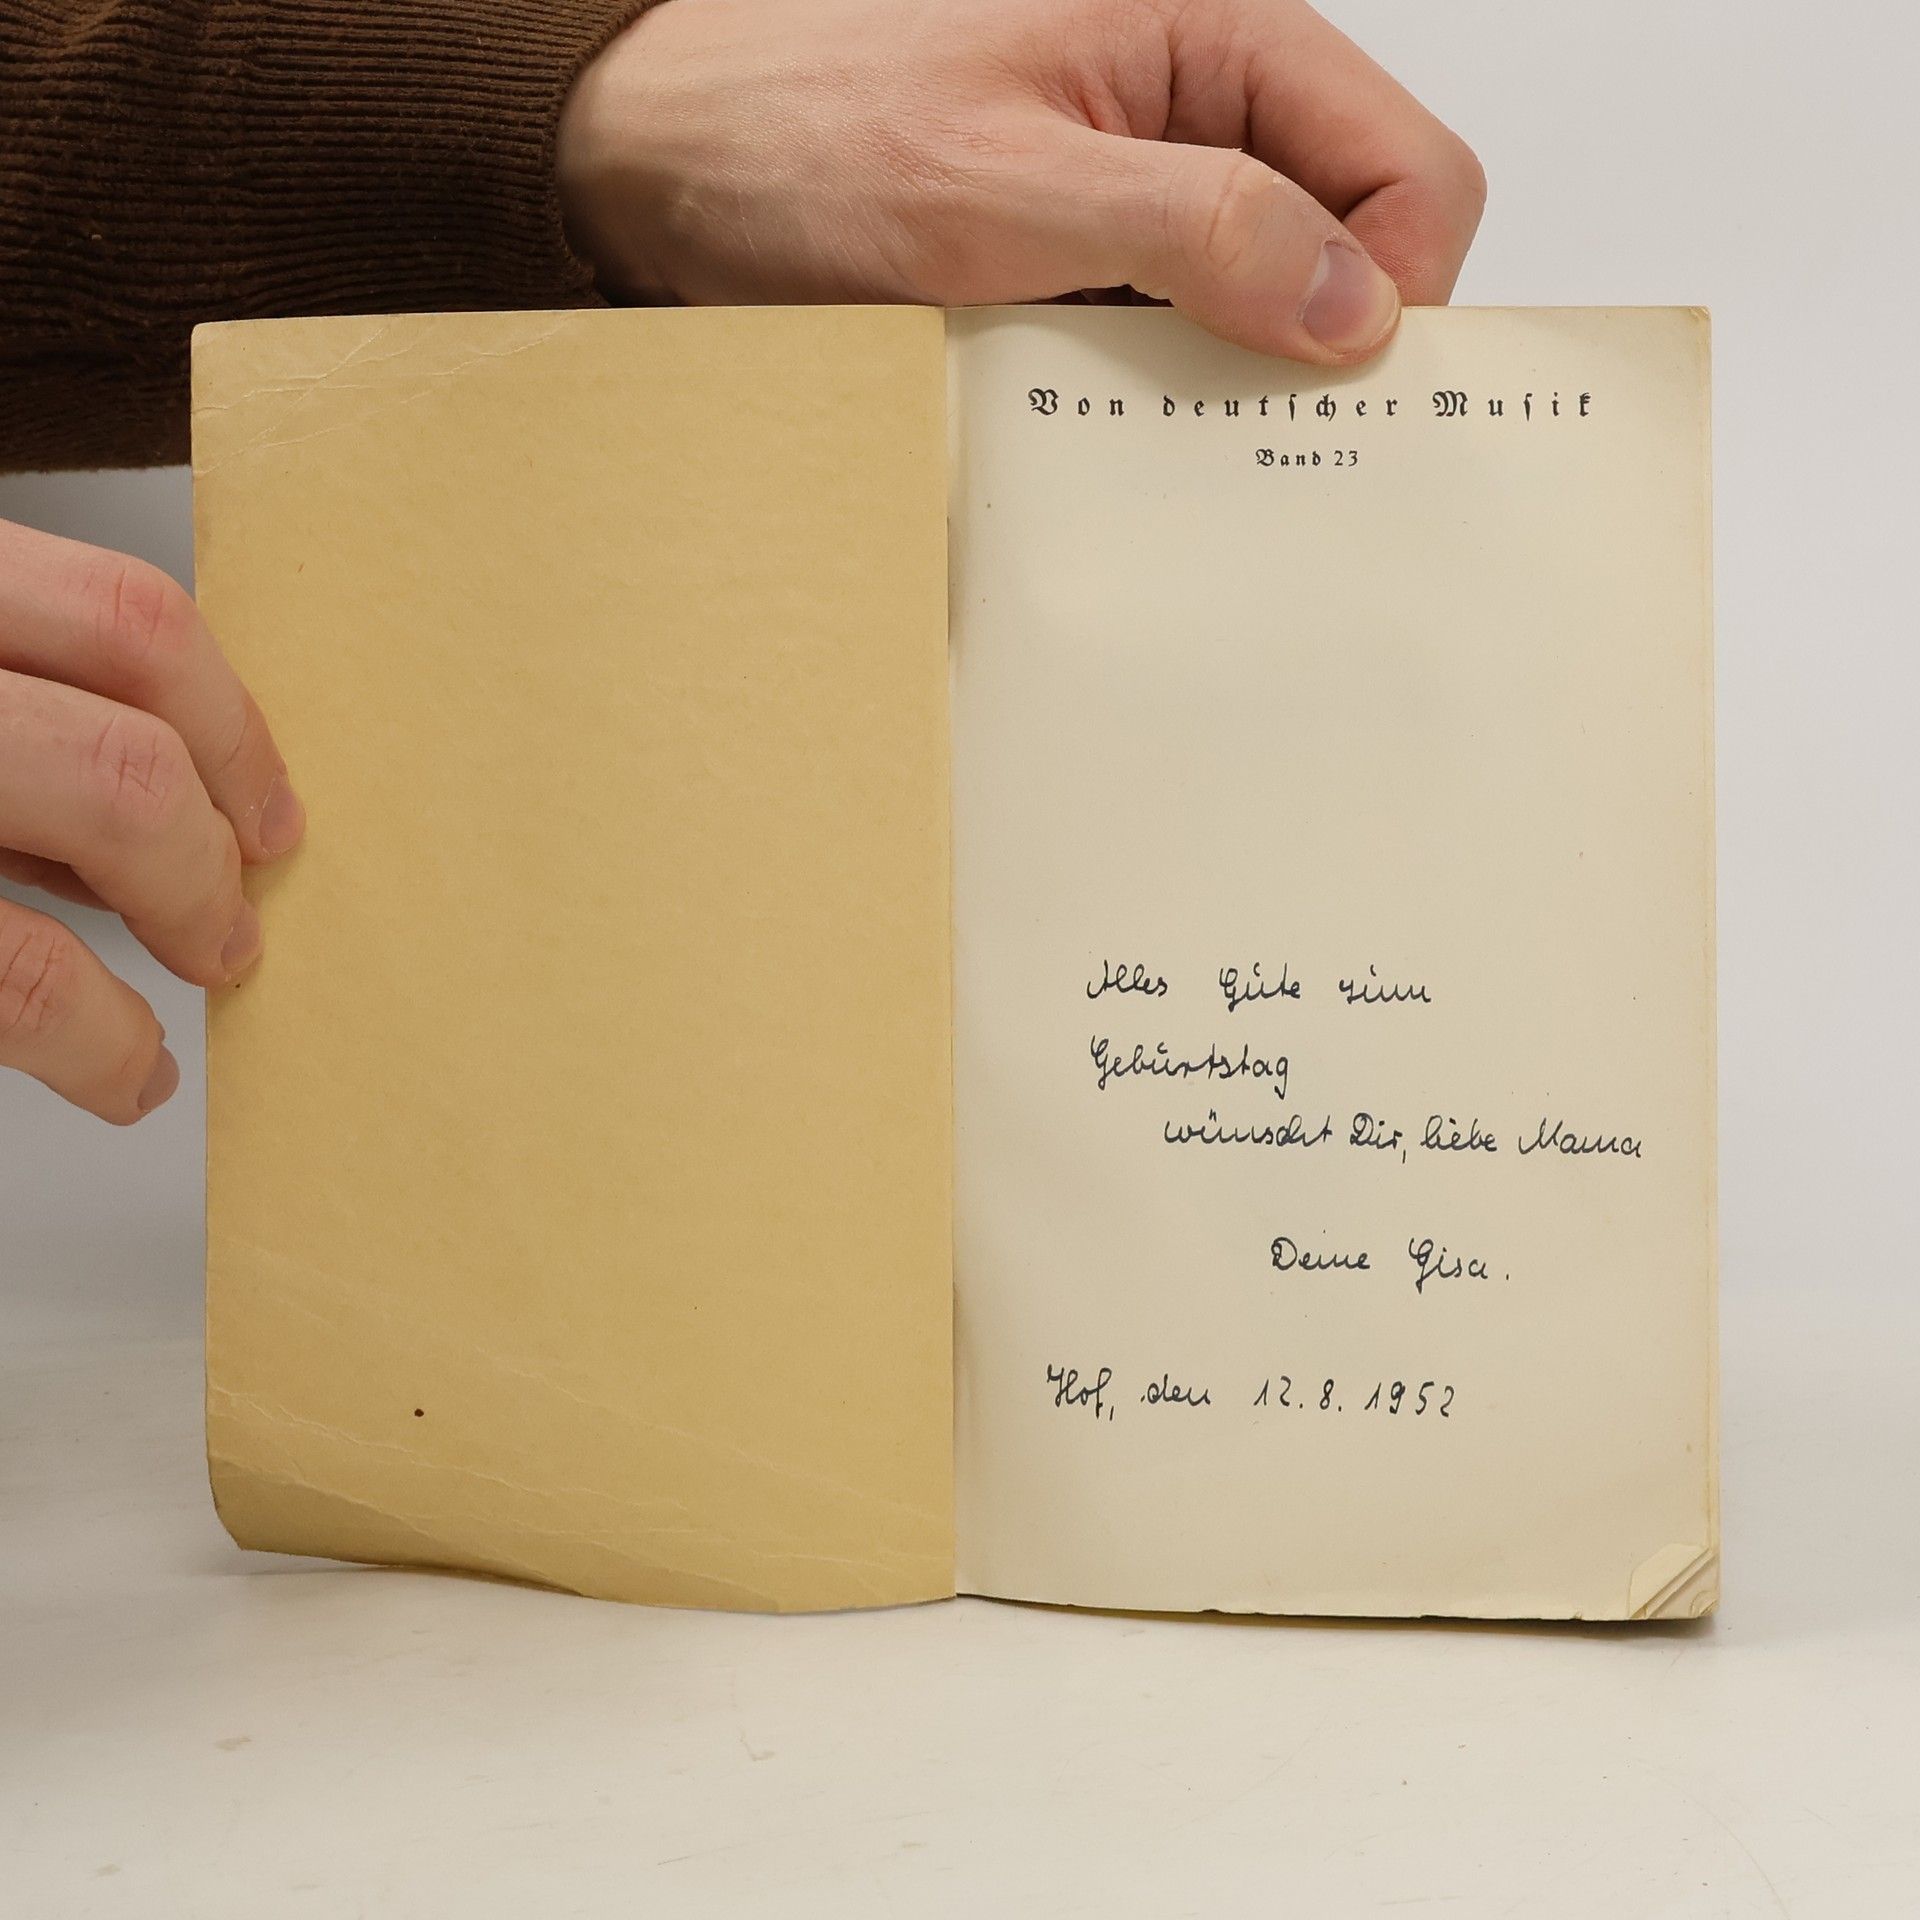 Von deutſcher Muſik
Band 23
Alles Gute zum
Geburtstag
wünscht Dir, liebe Mama
Deine Gisa.
Hof, den 12.8.1952